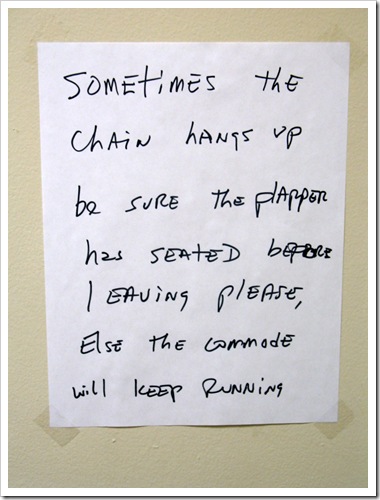 SOMEtiMES the
Chain hangs up
be SURE the flapper
has SEATED BEFORE
LEAVING PLEASE,
ElsE the commode
will KEEP RUNNING